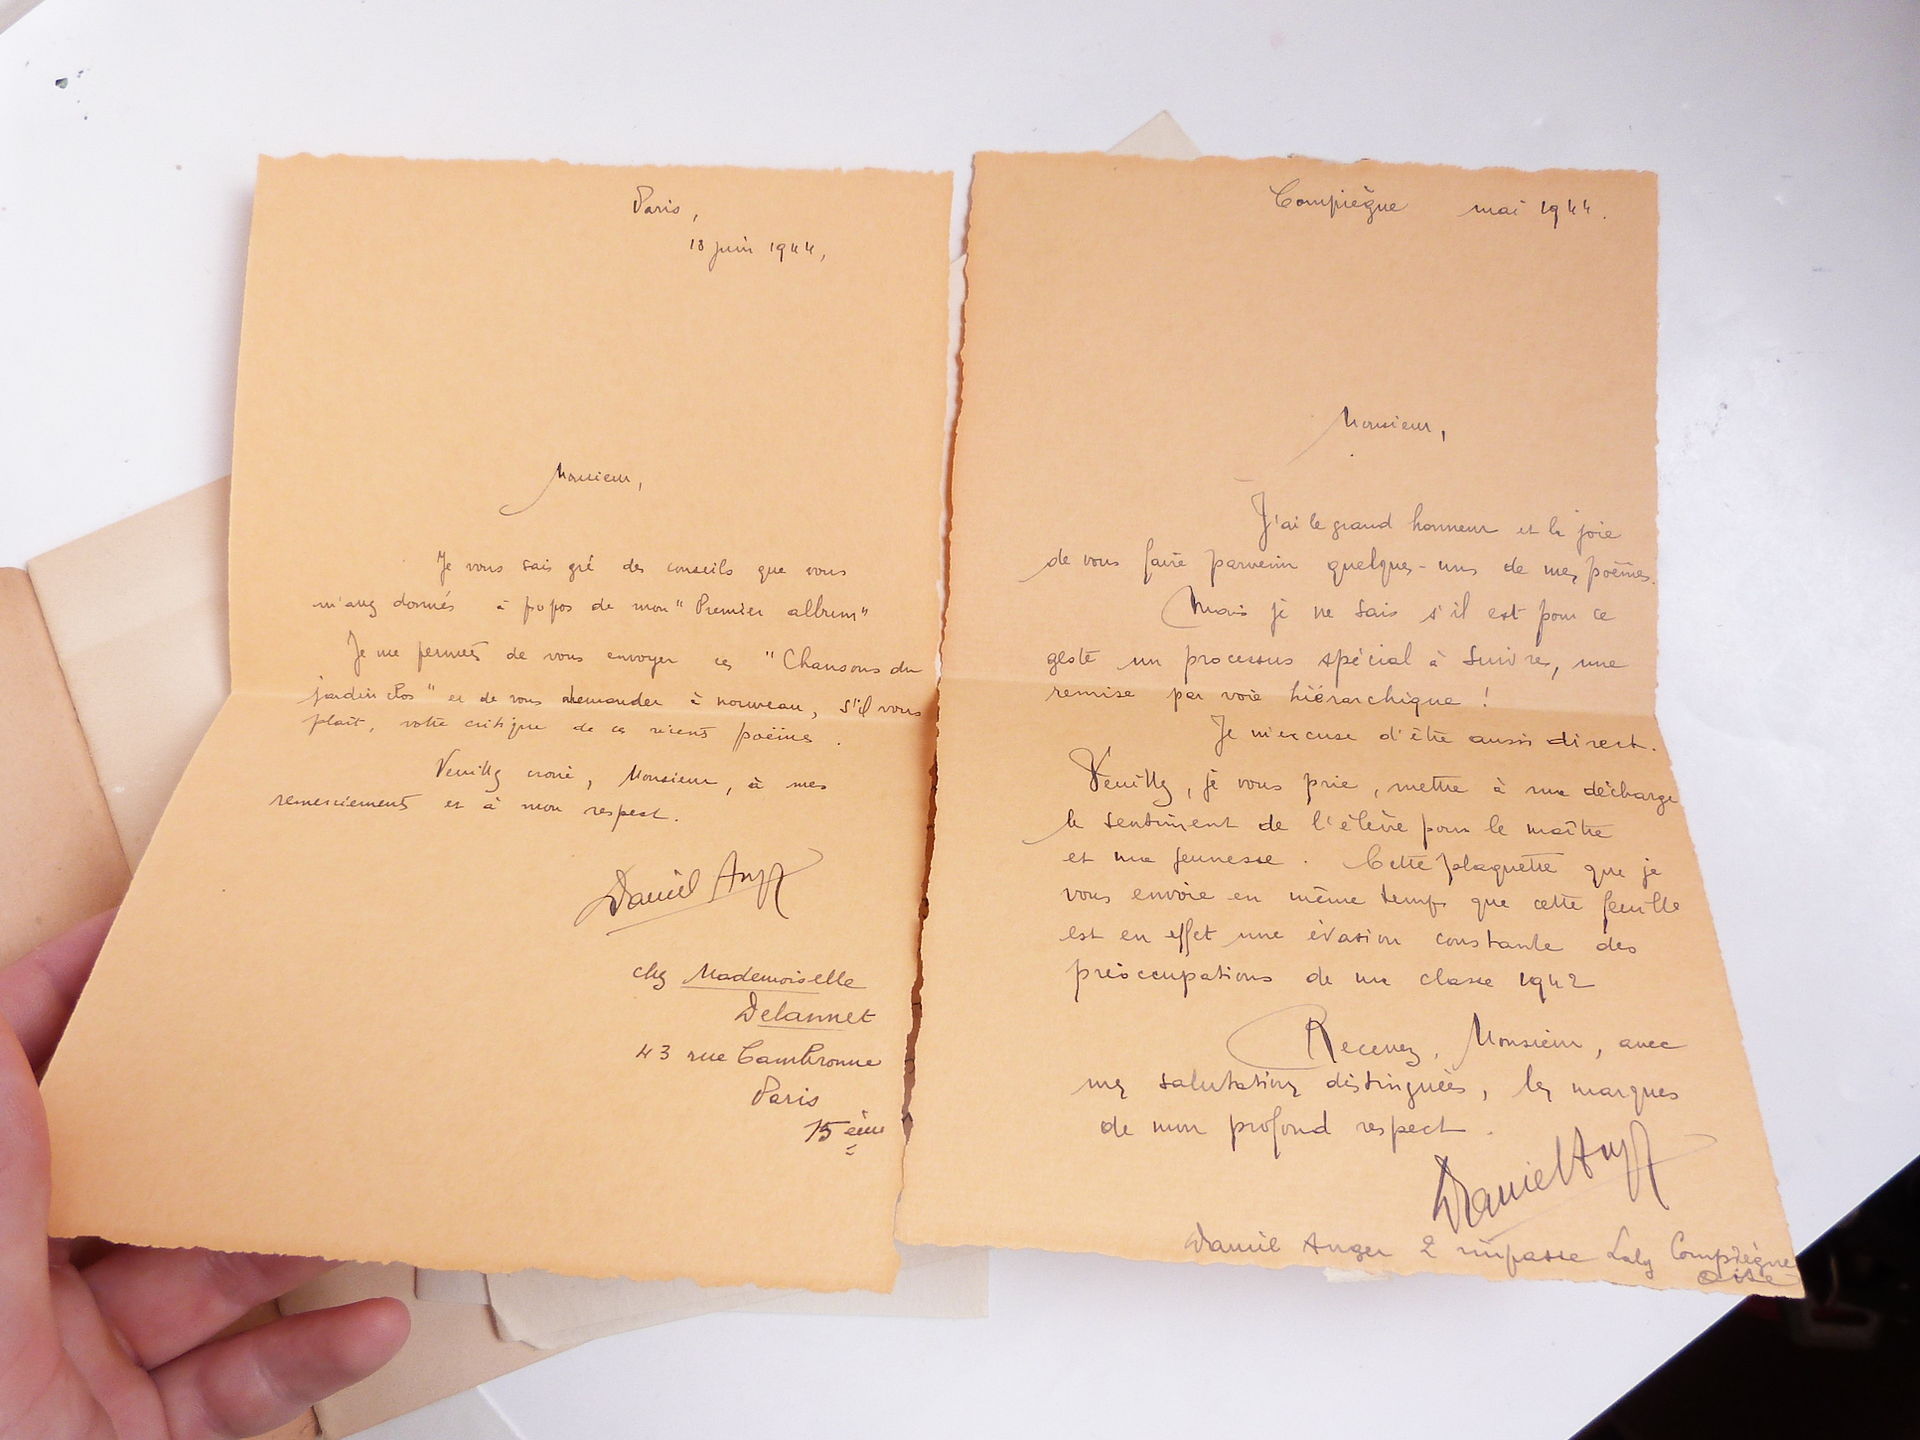 Paris,
18 juin 1944,
Monsieur,
Je vous sais gré des conseils que vous
m'avez donnés à propos de mon "Premier album"
Je me permets de vous envoyer ces "Chansons du
jardin clos" et de vous demander à nouveau, s'il vous
plaît, votre critique de ces récents poèmes.
Veuillez croire, Monsieur, à mes
remerciements et à mon respect.
Daniel
chez Mademoiselle
Delannet
43 rue Cambronne
Paris
15ème
Compiègne mai 1944.
Monsieur,
J'ai le grand honneur et la joie
de vous faire parvenir quelques-uns de mes poèmes.
Mais je ne sais s'il est pour ce
geste un processus spécial à suivre, une
remise par voie hiérarchique !
Je m'excuse d'être aussi direct.
Veuillez, je vous prie, mettre à ma décharge
le sentiment de l'élève pour le maître
et ma jeunesse. Cette plaquette que je
vous envoie en même temps que cette feuille
est en effet une évasion constante des
préoccupations de ma classe 1942
Recevez, Monsieur, avec
mes salutations distinguées, les marques
de mon profond respect.
Daniel
Daniel Anger 2 impasse Compiègne
Oise